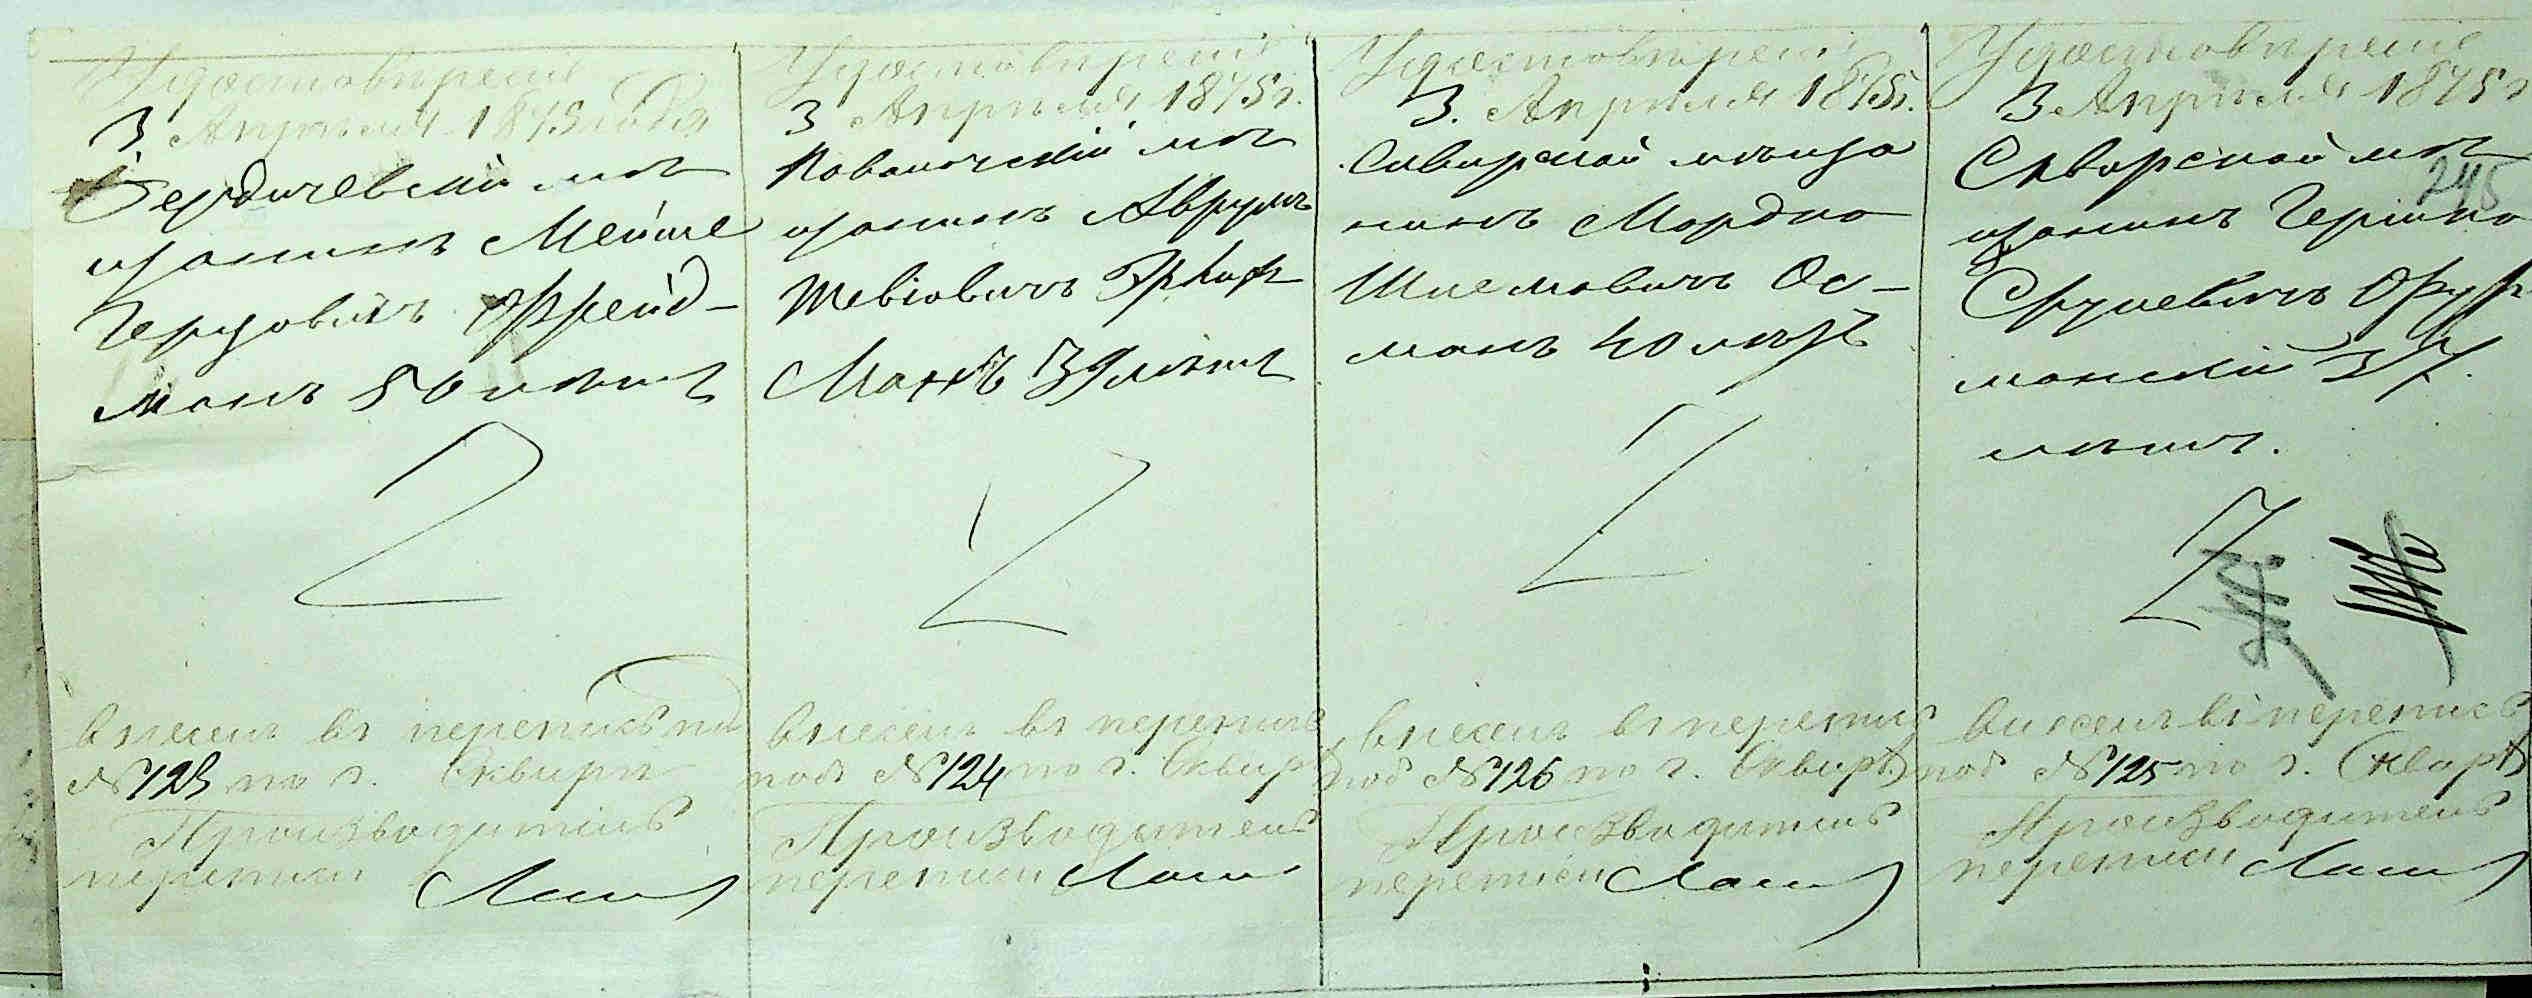 Удостовѣреніе
3 Апрѣля 1875 года
Бердичевскій мѣ
щанинъ Мейше
Герцовичъ Фрейд-
манъ 50 лѣтъ
внесенъ въ перепись под
№ 123 по г. Сквирѣ
Производитель
переписи
Удостовѣреніе
3 Апрѣля 1875 г.
мѣ
щанинъ Аврумъ
Манъ 39 лѣтъ
внесенъ въ перепись
подъ № 124 по г. Сквирѣ
Производитель
переписи
Удостовѣреніе
3. Апрѣля 1875 г.
Сквирской мѣща
нинъ Мордко
Шлемовичъ Ос-
манъ 40 лѣтъ
внесенъ въ перепись
под № 126 по г. Сквирѣ
Производитель
переписи
Удостовѣреніе
3 Апрѣля 1875 г
Сквирской мѣ
245
щанинъ Гершко
Срулевичъ Фур
манскій 37.
лѣтъ.
внесенъ въ перепись
под № 125 по г. Сквирѣ
Производитель
переписи